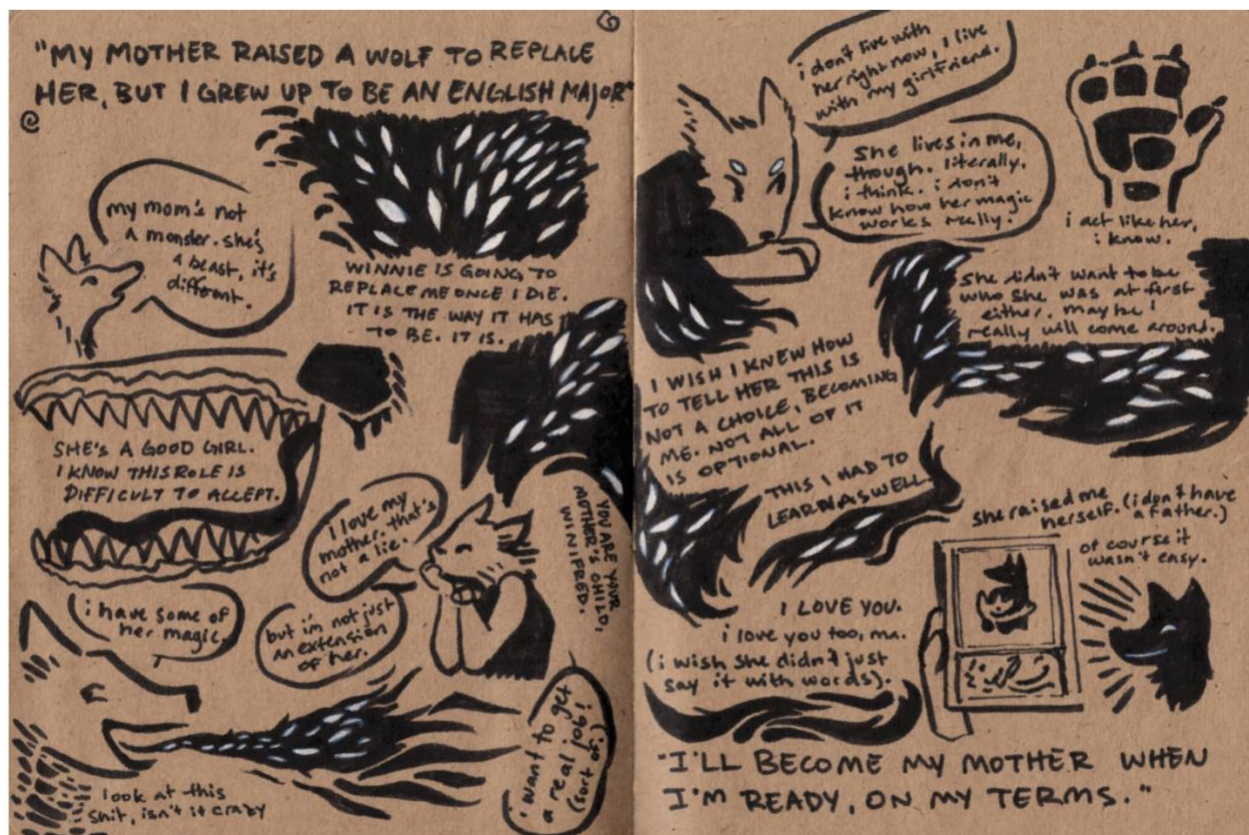 "MY MOTHER RAISED A WOLF TO REPLACE
HER, BUT I GREW UP TO BE AN ENGLISH MAJOR"
my mom's not
a monster. she's
a beast, it's
different.
WINNIE IS GOING TO
REPLACE ME ONCE I DIE.
IT IS THE WAY IT HAS
TO BE. IT IS.
SHE'S A GOOD GIRL.
I KNOW THIS ROLE IS
DIFFICULT TO ACCEPT.
I love my
mother. that's
not a lie.
but i'm not just
an extension
of her.
YOU ARE YOUR
MOTHER'S CHILD,
WINIFRED.
i have some of
her magic.
look at this
shit, isn't it crazy
i want to get
a real job!
(sort of.)
i don't live with
her right now, I live
with my girlfriend.
She lives in me,
though. literally,
i think. i don't
know how her magic
works really.
i act like her,
i know.
She didn't want to be
who she was at first
either. maybe i
really will come around.
I WISH I KNEW HOW
TO TELL HER THIS IS
NOT A CHOICE, BECOMING
ME. NOT ALL OF IT
IS OPTIONAL.
THIS I HAD TO
LEARN AS WELL.
she raised me
herself. (i don't have
a father.)
of course it
wasn't easy.
I LOVE YOU.
i love you too, ma.
(i wish she didn't just
say it with words).
"I'LL BECOME MY MOTHER WHEN
I'M READY, ON MY TERMS."